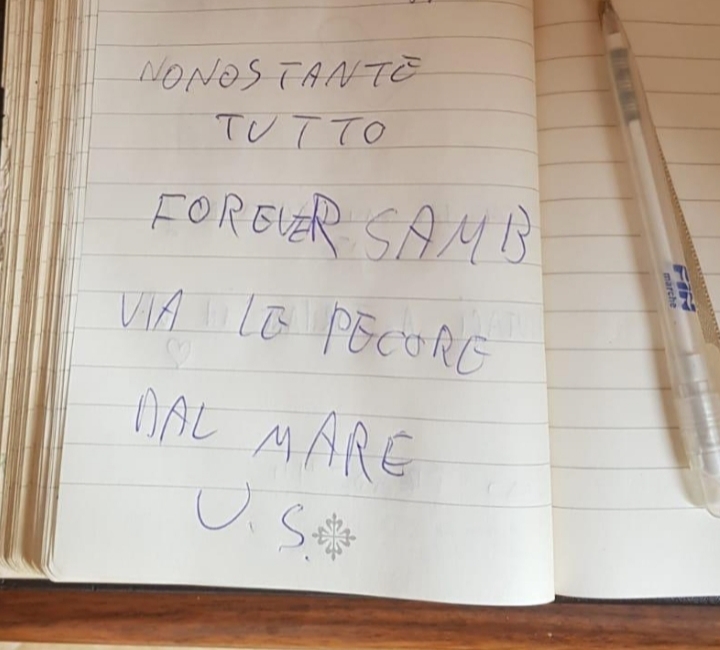 NONOSTANTE
TUTTO
FOREVER SAMB
VIA LE PECORE
DAL MARE
U.S.
FIN
marche